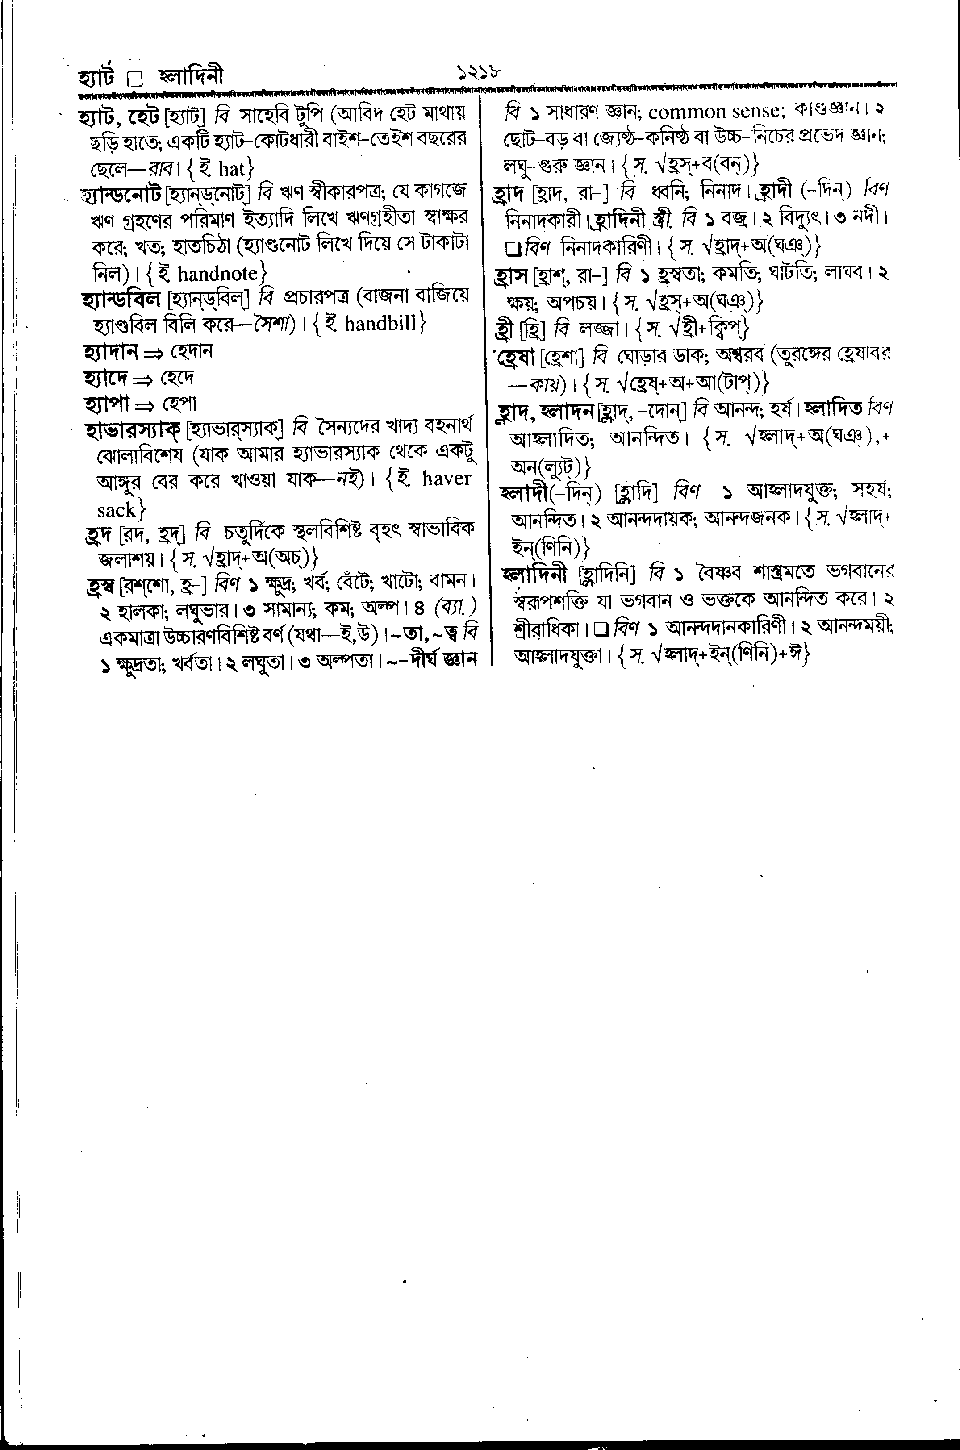 হ্যাট □ হ্লাদিনী
১২১৮
হ্যাট, হেট [হ্যাট্] বি সাহেবি টুপি (আবিদ হেট মাথায়
ছড়ি হাতে; একটি হ্যাট-কোটধারী বাইশ-তেইশ বছরের
ছেলে—রাব)। {ই hat}
হ্যান্ডনোট [হ্যান্‌ড্‌নোট্] বি ঋণ স্বীকারপত্র; যে কাগজে
ঋণ গ্রহণের পরিমাণ ইত্যাদি লিখে ঋণগ্রহীতা স্বাক্ষর
করে; খত; হাতচিঠা (হ্যাণ্ডনোট লিখে দিয়ে সে টাকাটা
নিল)। {ই handnote}
হ্যান্ডবিল [হ্যান্‌ড্‌বিল্] বি প্রচারপত্র (বাজনা বাজিয়ে
হ্যাণ্ডবিল বিলি করে—সৈশা)। {ই. handbill}
হ্যাদান ⇒ হেদান
হ্যাদে ⇒ হেদে
হ্যাপা ⇒ হেপা
হাভারস্যাক্ [হ্যাভার্‌স্যাক্] বি সৈন্যদের খাদ্য বহনার্থ
ঝোলাবিশেষ (যাক আমার হ্যাভারস্যাক থেকে একটু
আঙ্গুর বের করে খাওয়া যাক—নই)। {ই haver
sack}
হ্রদ [রদ, হ্রদ্] বি চতুর্দিকে স্থলবিশিষ্ট বৃহৎ স্বাভাবিক
জলাশয়। {স. √হ্রাদ্+অ(অচ)}
হ্রস্ব [রশ্‌শো, হ্র-] বিণ ১ ক্ষুদ্র; খর্ব; বেঁটে; খাটো; বামন।
২ হালকা; লঘুভার। ৩ সামান্য; কম; অল্প। ৪ (ব্যা.)
একমাত্রা উচ্চারণবিশিষ্ট বর্ণ (যথা—ই,উ)। ~তা, ~ত্ব বি
১ ক্ষুদ্রতা; খর্বতা। ২ লঘুতা। ৩ অল্পতা। ~-দীর্ঘ জ্ঞান
বি ১ সাধারণ জ্ঞান; common sense; কাণ্ডজ্ঞান। ২
ছোট-বড় বা জ্যেষ্ঠ-কনিষ্ঠ বা উচ্চ-নিচের প্রভেদ জ্ঞান;
লঘু-গুরু জ্ঞান। {স. √হ্রস্+ব(বন্)}
হ্রাদ [হ্রাদ, রা-] বি ধ্বনি; নিনাদ। হ্রাদী (-দিন) বিণ
নিনাদকারী। হ্রাদিনী স্ত্রী. বি ১ বজ্র। ২ বিদ্যুৎ। ৩ নদী।
□ বিণ নিনাদকারিণী। {স. √হ্রাদ্+অ(ঘঞ্)}
হ্রাস [হ্রাশ্, রা-] বি ১ হ্রস্বতা; কমতি; ঘাটতি; লাঘব। ২
ক্ষয়; অপচয়। {স. √হ্রস্+অ(ঘঞ্)}
হ্রী [হ্রি] বি লজ্জা। {স. √হ্রী+ক্বিপ্}
হ্রেষা [হ্রেশা] বি ঘোড়ার ডাক; অশ্বরব (তুরঙ্গের হ্রেষারব
—কায়)। {স. √হ্রেষ্+অ+আ(টাপ্)}
হ্লাদ, হ্লাদন [হ্লাদ্, -দোন্] বি আনন্দ; হর্ষ। হ্লাদিত বিণ
আহ্লাদিত; আনন্দিত। {স. √হ্লাদ্+অ(ঘঞ্),+
অন(ল্যুট্)}
হ্লাদী(-দিন্) [হ্লাদি] বিণ ১ আহ্লাদযুক্ত; সহর্ষ;
আনন্দিত। ২ আনন্দদায়ক; আনন্দজনক। {স. √হ্লাদ্+
ইন্(ণিনি)}
হ্লাদিনী [হ্লাদিনি] বি ১ বৈষ্ণব শাস্ত্রমতে ভগবানের
স্বরূপশক্তি যা ভগবান ও ভক্তকে আনন্দিত করে। ২
শ্রীরাধিকা। □ বিণ ১ আনন্দদানকারিণী। ২ আনন্দময়ী;
আহ্লাদযুক্তা। {স. √হ্লাদ্+ইন্(ণিনি)+ঈ}